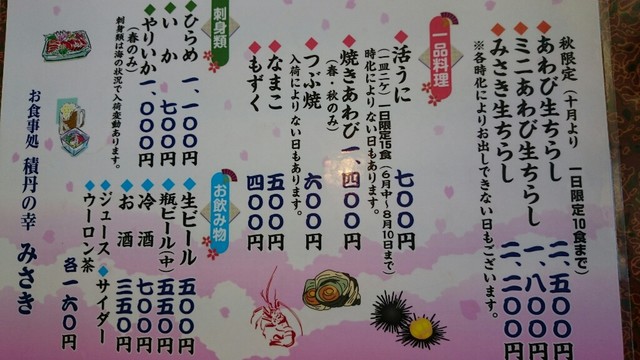 秋限定（十月より 一日限定10食まで）
◆あわび生ちらし 二、五〇〇円
◆ミニあわび生ちらし 一、八〇〇円
◆みさき生ちらし 二、二〇〇円
※各時化によりお出しできない日もございます。
一品料理
◆活うに 七〇〇円
（一皿二ケ）一日限定15食（6月中～8月10日まで）
時化によりない日もあります。
◆焼きあわび 一、四〇〇円
（春・秋のみ）
◆つぶ焼 六〇〇円
入荷によりない日もあります。
◆なまこ 五〇〇円
◆もずく 四〇〇円
刺身類
◆ひらめ 一、一〇〇円
◆いか 七〇〇円
◆やりいか 一、〇〇〇円
（春のみ）
刺身類は海の状況で入荷変動あります。
お飲み物
◆生ビール 五〇〇円
◆瓶ビール（中） 五五〇円
◆冷酒 七〇〇円
◆お酒 三五〇円
◆ジュース ◆サイダー
◆ウーロン茶 各一六〇円
お食事処 積丹の幸 みさき